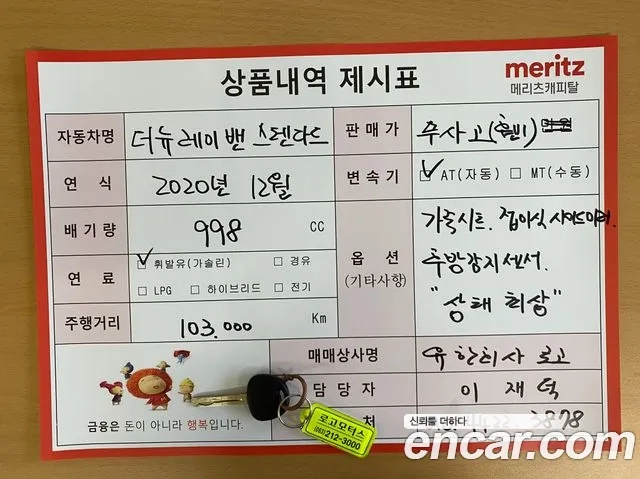 상품내역 제시표
meritz
메리츠캐피탈
자동차명 더뉴레이밴 스탠다드
판매가 무사고
연식 2020년 12월
변속기 ☑ AT(자동) □ MT(수동)
배기량 998 CC
옵션 (기타사항)
가죽시트. 접이식 사이드미러.
후방감지센서.
"상태 최상"
연료 ☑ 휘발유(가솔린) □ 경유
□ LPG □ 하이브리드 □ 전기
주행거리 103.000 Km
매매상사명 유한회사 로고
담당자 이재덕
처 3878
금융은 돈이 아니라 행복입니다.
로고모터스
(063)212-3000
신뢰를 더하다
encar.com